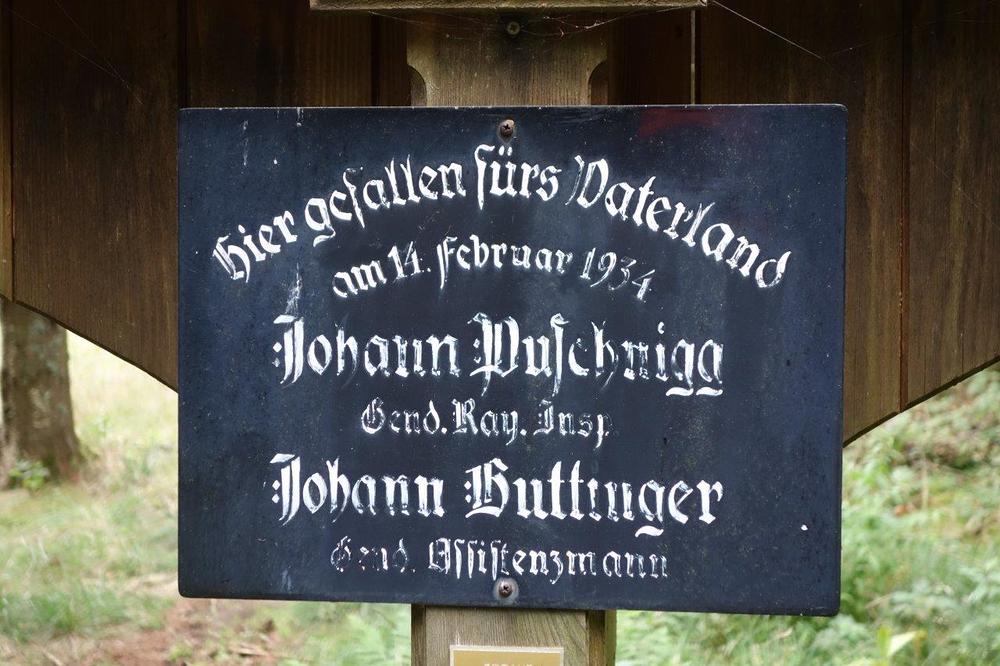 Hier gefallen fürs Vaterland
am 14. Februar 1934
Johann Puschnigg
Gend. Ray. Insp.
Johann Buttinger
Gend. Assistenzmann